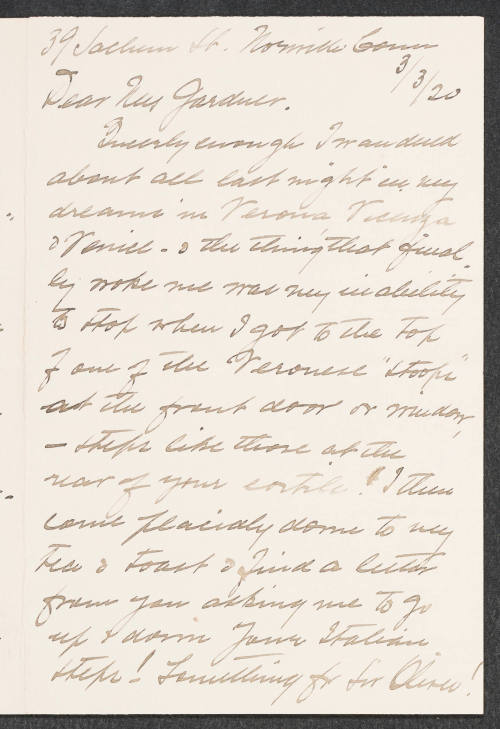 39 Sachem St. Norwich Conn
3/3/20
Dear Mrs Gardner.
Queerly enough I wandered
about all last night in my
dreams in Verona Vicenza
& Venice - & the thing that final-
ly woke me was my inability
to stop when I got to the top
of one of the Veronese "stoops"
at the front door or window,
- steps like those at the
rear of your cortile. I then
come placidly down to my
tea & toast & find a letter
from you asking me to go
up & down your Italian
steps! Something for Sir Oliver!